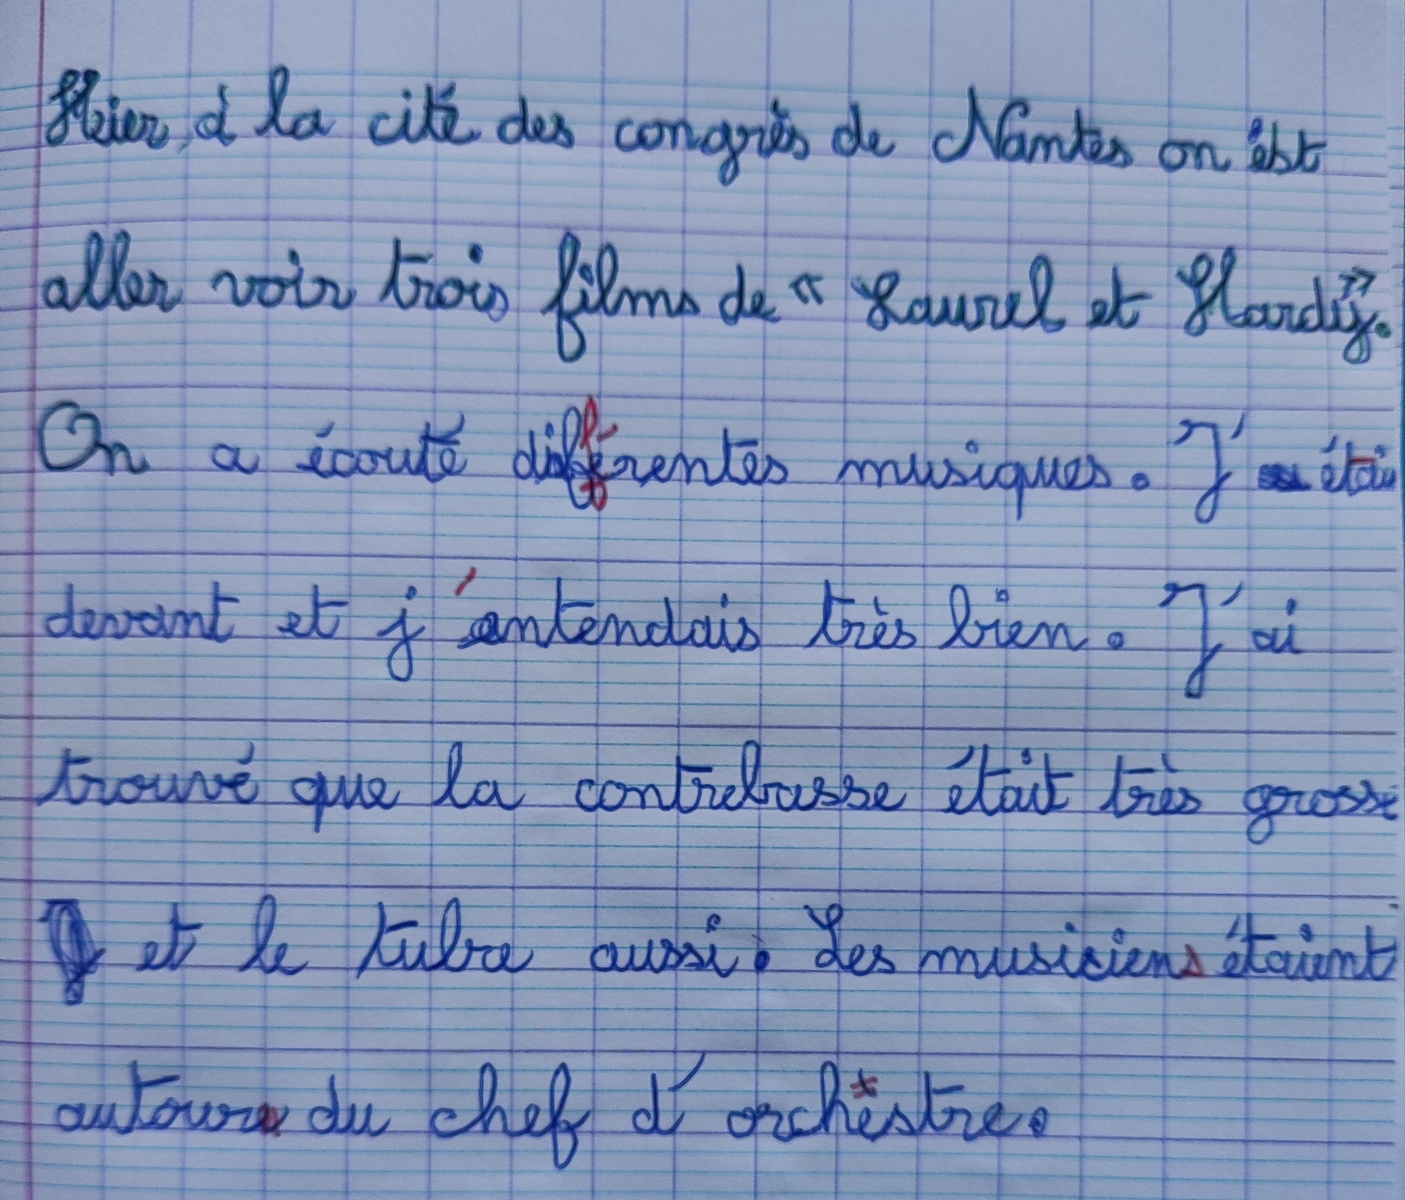 Hier, à la cité des congrès de Nantes on est
aller voir trois films de « Laurel et Hardy».
On a écouté différentes musiques. J' étai
devant et j'entendais très bien. J'ai
trouvé que la contrebasse était très grosse
et le tuba aussi. Les musiciens étaient
autour du chef d'orchestre.